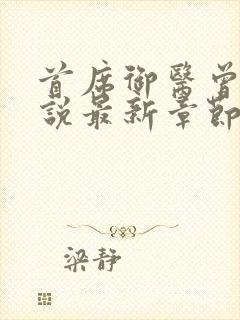 首席御醫曾
說最新章節
梁静